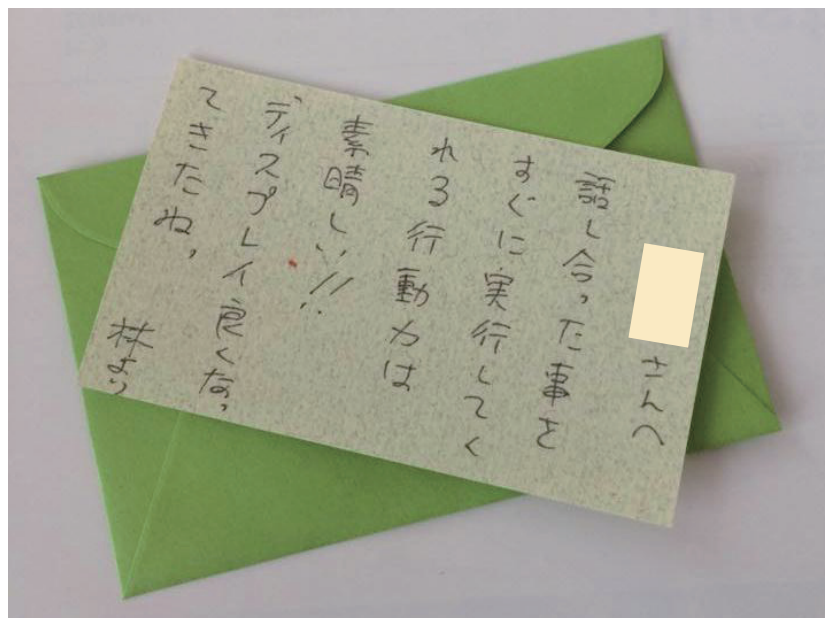 さんへ
話し合った事を
すぐに実行してく
れる行動力は
素晴しい!!
ディスプレイ良くなっ
てきたね。
林より